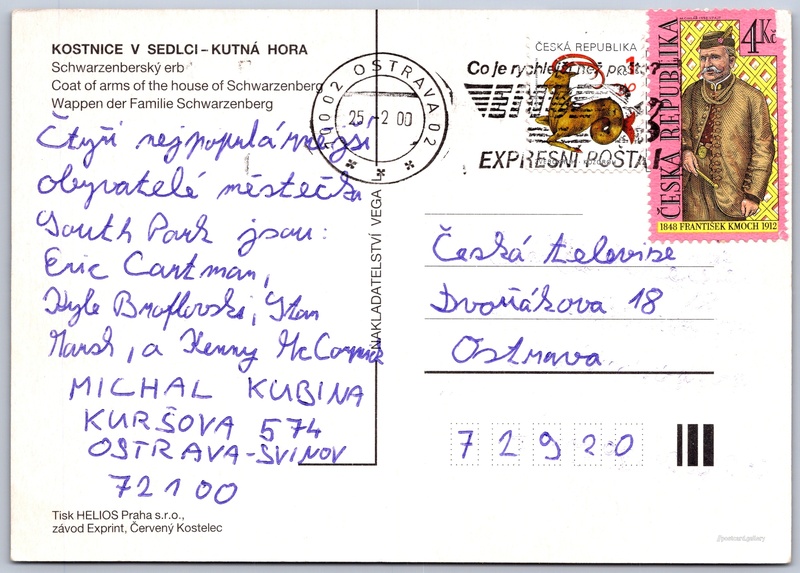 KOSTNICE V SEDLCI – KUTNÁ HORA
Schwarzenberský erb
Coat of arms of the house of Schwarzenberg
Wappen der Familie Schwarzenberg
Čtyři nejpopulárnější
obyvatelé městečka
South Park jsou:
Eric Cartman,
Kyle Broflovski, Stan
Marsh, a Kenny McCormick
MICHAL KUBINA
KURŠOVA 574
OSTRAVA-SVINOV
72100
Tisk HELIOS Praha s.r.o.,
závod Exprint, Červený Kostelec
NAKLADATELSTVÍ VEGA
OSTRAVA 02
25 2 00
Co je rychlejší než
EMS
EXPRESNÍ POSTA!
ČESKÁ REPUBLIKA
4Kč
ČESKÁ REPUBLIKA
1848 FRANTIŠEK KMOCH 1912
Česká televise
Dvořákova 18
Ostrava
72920
//postcard.gallery